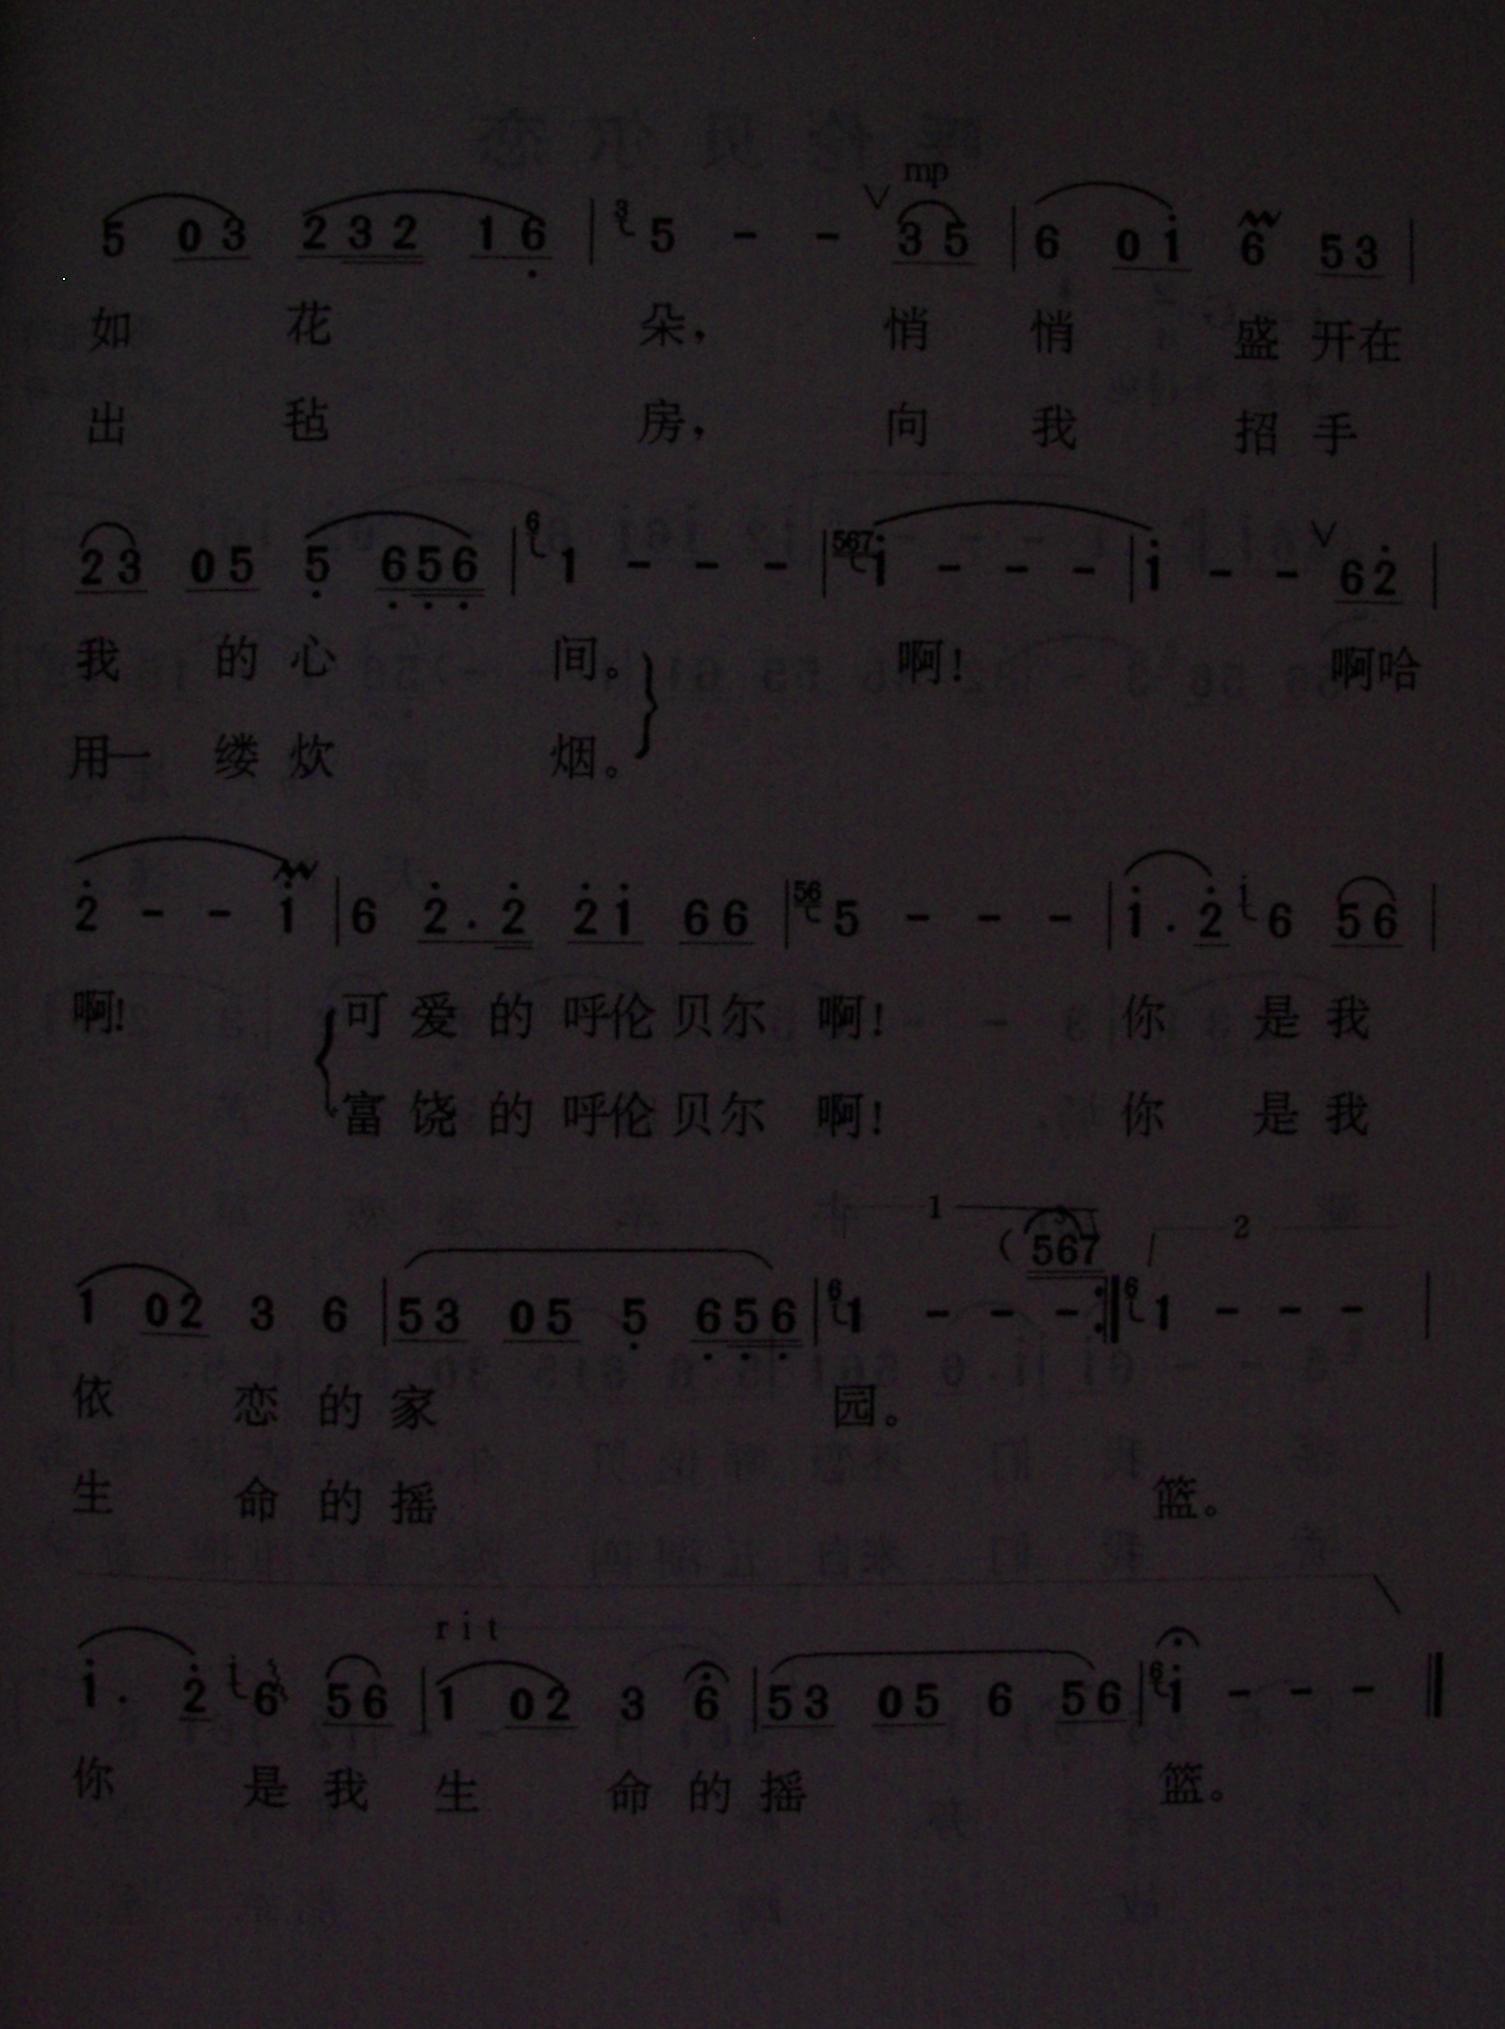 mp
5 03 232 16 | 3 5 - - ∨ 35 | 6 0i 6 53 |
如 花 朵, 悄 悄 盛 开在
出 毡 房, 向 我 招 手
23 05 5 656 | 6 1 - - - | 567 i - - - | i - - ∨ 62 |
我 的 心 间。 啊! 啊哈
用一 缕 炊 烟。
2 - - i | 6 2·2 2i 66 | 56 5 - - - | i·2 i 6 56 |
啊! 可 爱 的 呼伦 贝尔 啊! 你 是 我
富 饶 的 呼伦 贝尔 啊! 你 是 我
1 (567 2
1 02 3 6 | 53 05 5 656 | 6 1 - - - :‖ 6 1 - - - |
依 恋 的 家 园。
生 命 的 摇 篮。
rit
i· 2 i 6 56 | 1 02 3 6 | 53 05 6 56 | 6 i - - - ‖
你 是 我 生 命 的 摇 篮。